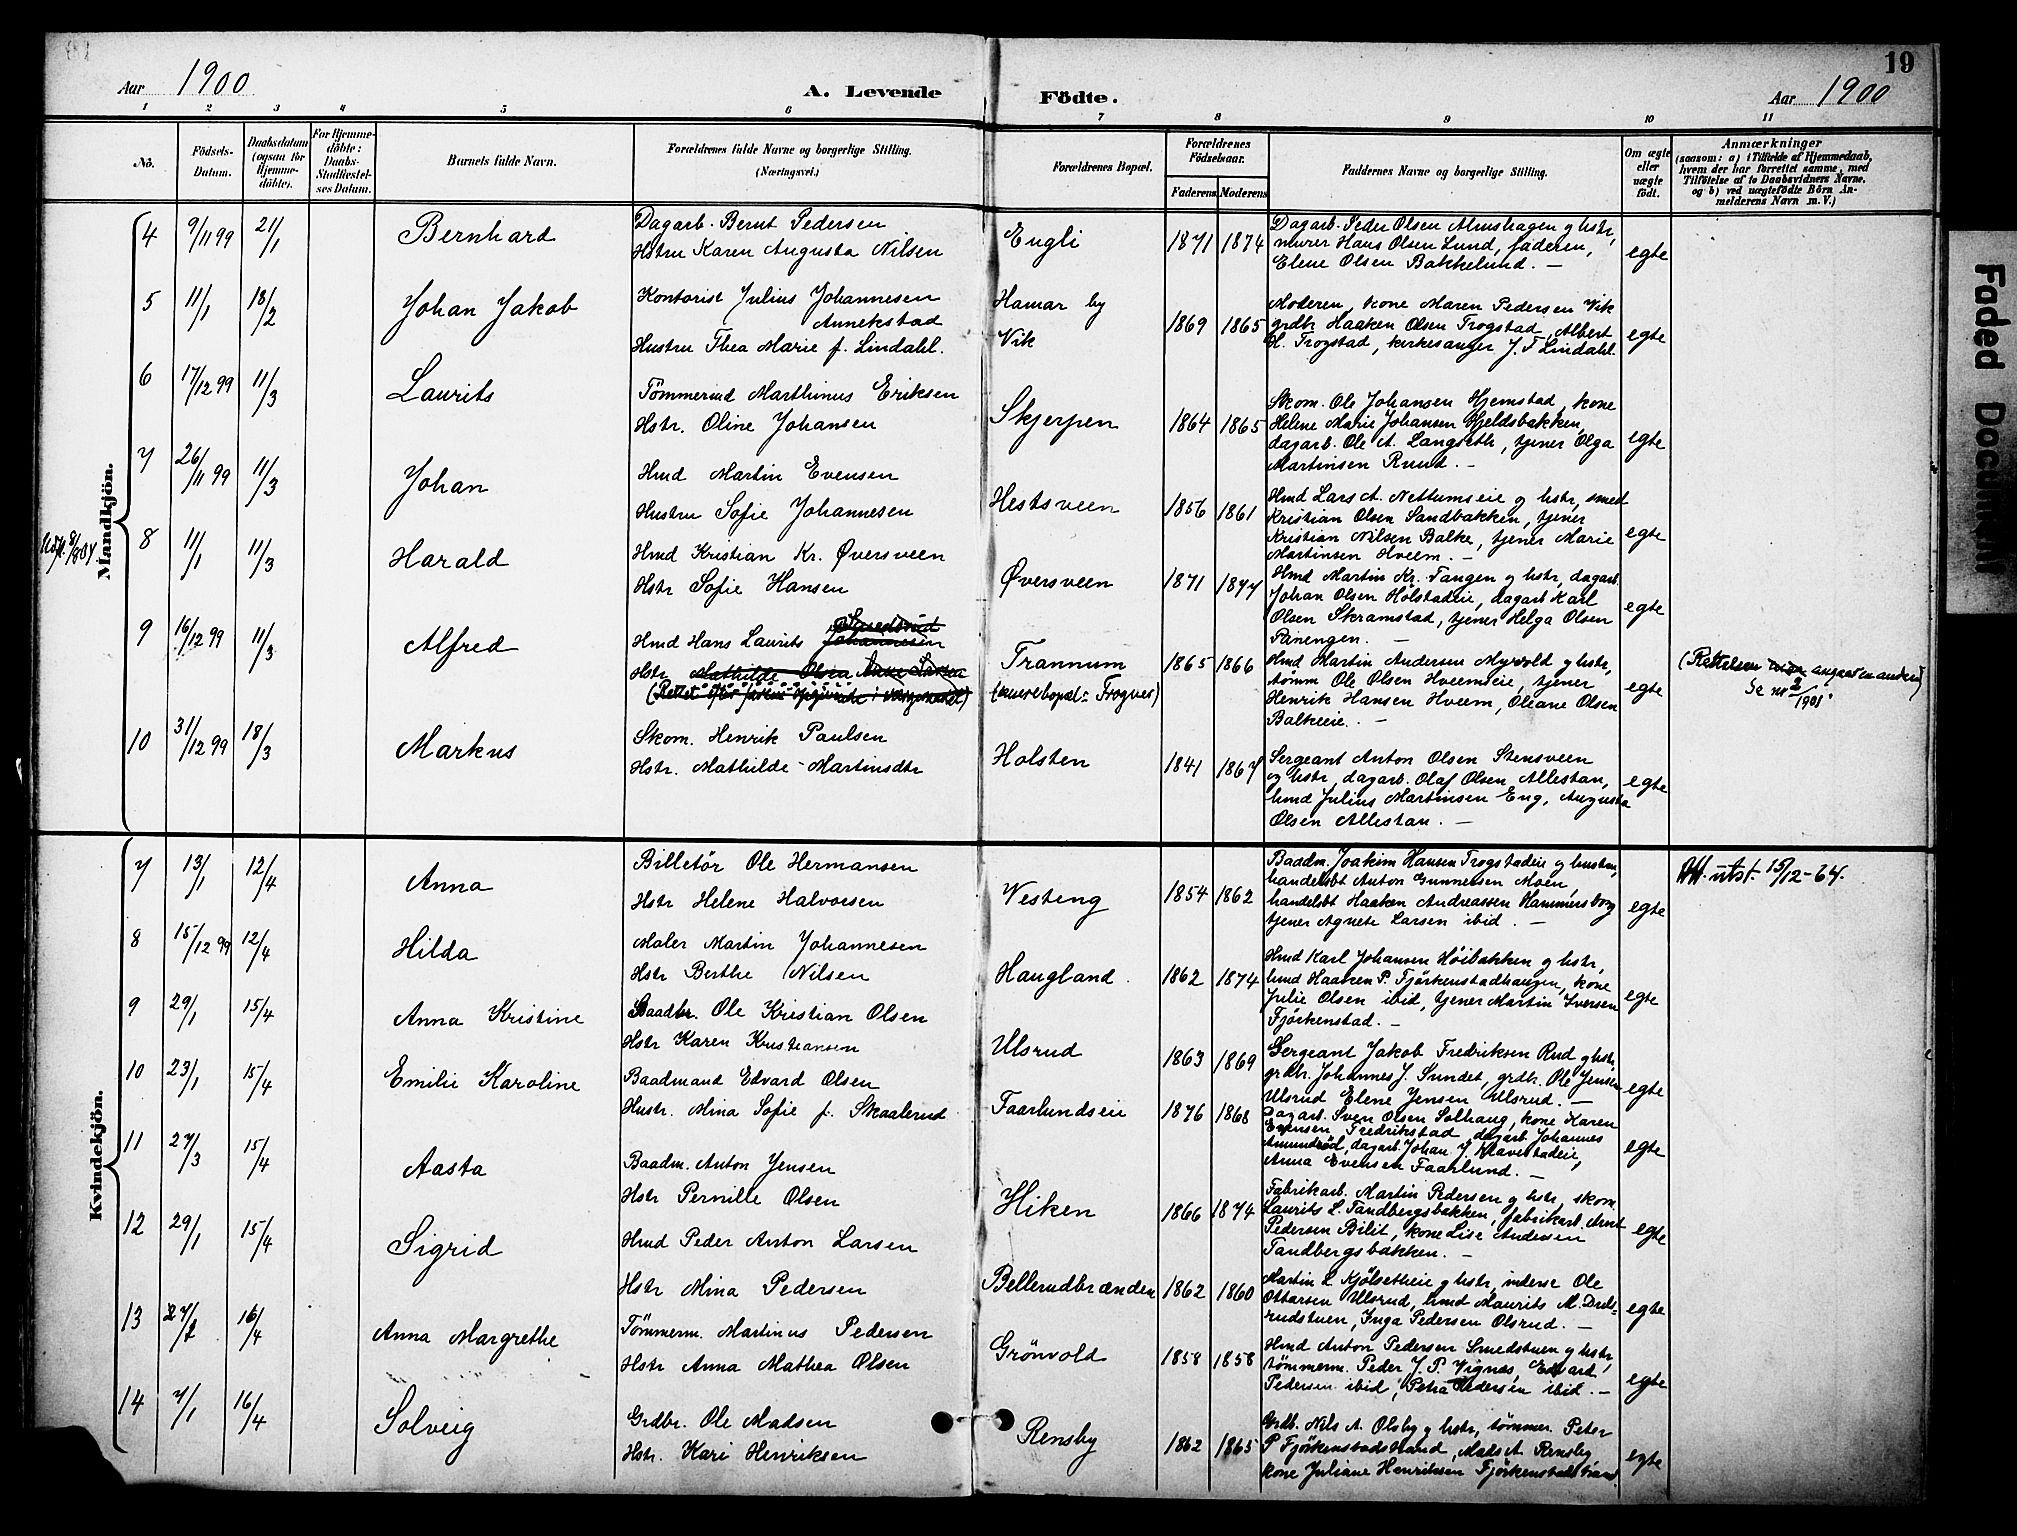 19
Aar 1900
A. Levende
Födte.
Aar 1900
1 2 3 4 5 6 7 8 9 10 11
No.
Födsels-Datum.
Daabsdatum (ogsaa for Hjemmedöbte).
For Hjemmedöbte: Daabs-Stadfæstelses Datum.
Barnets fulde Navn.
Forældrenes fulde Navne og borgerlige Stilling.
(Næringsvei.)
Forældrenes Bopæl.
Forældrenes Födselsaar.
Faderens
Moderens
Faddernes Navne og borgerlige Stilling.
Om ægte eller uægte födt.
Anmærkninger
(saasom: a) i Tilfælde af Hjemmedaab,
hvem der har forrettet samme, med
Tilföielse af to Daabsvidners Navne,
og b) ved uægtefödte Börn An-
melderens Navn m. V.)
Mandkjön.
4 9/11 99 21/1 Bernhard
Dagarb. Bernt Pedersen
Hstru Karen Augusta Nilsen
Engli 1871 1874
Dagarb. Peder Olsen Almshagen g hstr,
murer Hans Olsen Lund, faderen,
Elene Olsen Bakkelund. —
egte
5 11/1 18/2 Johan Jakob
Kontorist Julius Johannesen
Annekstad
Hustru Thea Marie f. Lindahl.
Hamar by
Vik
1869 1865
Moderen, kone Maren Pedersen Vik
grdbr Haaken Olsen Trogstad, Albert
H. Trogstad, kirkesanger J. F Lindahl.
egte
6 17/12 99 11/3 Laurits
Tömmermd Marthinus Eriksen
Hstr. Oline Johansen
Skjerpen 1864 1865
Skom. Ole Johansen Hjemstad, kone
Helene Marie Johansen Gjeldsbakken,
dagarb. Ole A. Langseth, tjener Olga
Martinsen Ruud. —
egte
7 26/11 99 11/3 Johan
Hmd Martin Evensen
Hustru Sofie Johannesen
Hestsveen 1856 1861
Hmd Lars A. Nettumseie g hstr, smed
Kristian Olsen Sandbakken, tjener
Kristian Nilsen Balke, tjener Marie
Martinsen Hveem. —
egte
8 11/1 11/3 Harald
Hmd Kristian Kr. Øversveen
Hstr Sofie Hansen
Øversveen 1871 1877
Hmd Martin Kr. Tangen g hstr, dagarb
Johan Olsen Holstadeie, dagarb Karl
Olsen Skramstad, tjener Helga Olsen
Panengen. —
egte
9 16/12 99 11/3 Alfred
Hmd Hans Laurits Johannesen
Hstr Mathilde Olsen
Trannum
1865 1866
Hmd Martin Andersen Myrvold g hstr,
tømm Ole Olsen Hveemseie, tjener
Henrik Hansen Hveem, Oleane Olsen
Balkeeie. —
egte
Se nr 2/1901
10 31/12 99 18/3 Markus
Skom. Henrik Paulsen
Hstr. Mathilde Martinsdtr
Holsten 1841 1867
Sergeant Anton Olsen Stensveen
og hstr, dagarb. Olaf Olsen Allestan,
hmd Julius Martinsen Eng, Augusta
Olsen Allestan. —
egte
Kvindekjön.
7 13/1 12/4 Anna
Billetör Ole Hermansen
Hstr Helene Halvorsen
Vesteng 1854 1862
Baadm. Joakim Hansen Trogstadeie g hustru,
handelsbt Anton Gunnersen Moen,
handelsbt Haaken Andreassen Hammersborg
tjener Agnete Larsen ibid. —
egte
Att. utst. 15/12-64.
8 15/12 99 12/4 Hilda
Maler Martin Johannesen
Hstr Berthe Nilsen
Haugland. 1862 1874
Hmd Karl Johansen Höibakken g hstr,
hmd Haaken P. Fjörkenstadhaugen, kone
Julie Olsen ibid, tjener Martin Iversen
Fjörkenstad. —
egte
9 29/1 15/4 Anna Kristine
Baadbr. Ole Kristian Olsen
Hstr Karen Kristiansen
Ulsrud 1863 1869
Sergeant Jakob Fredriksen Rud g hstr
grdbr. Johannes J. Sundet, grdbr. Ole Jensen
Ulsrud Elene Jensen Ulsrud. —
egte
10 23/1 15/4 Emilie Karoline
Baadmand Edvard Olsen
Hustr. Mina Sofie f. Skaalerud
Faarlundseie 1876 1868
Dagarb. Sven Olsen Solhaug, kone Karen
Evensen Fredrikstad, dagarb. Johannes
Amundrød, dagarb. Johan J. Klavestadeie,
Anna Evensen Faarlund. —
egte
11 27/3 15/4 Aasta
Baadm. Anton Jensen
Hstr Pernille Olsen
Hiken 1866 1874
Fabrikarb. Martin Pedersen g hstr, skom.
Laurits L. Tandbergsbakken, fabrikarb. Arnt
Pedersen Bilit, kone Lise Andersen
Tandbergsbakken. —
egte
12 29/1 15/4 Sigrid
Hmd Peder Anton Larsen
Hstr Mina Pedersen
Bellerudbrænden 1862 1860
Martin L Kjölsetheie g hstr, inderst Ole
Ottarsen Ulsrud, hmd Maurits M. Dræls-
rudstuen, Inga Pedersen Olsrud. —
egte
13 16/4 Anna Margrethe
Tömmerm. Martinus Pedersen
Hstr Anna Mathea Olsen
Grönvold 1858 1858
Hmd Anton Pedersen Smedstuen g hstr
tömmerm. Peder J. P. Vignæs, Edvard
Pedersen ibid, Petra Pedersen ibid. —
egte
14 7/1 16/4 Solveig
Grdbr. Ole Madsen
Hstr. Kari Henriksen
Rensby 1862 1865
Grdb. Nils A. Olsby g hstr, tömmer. Peter
P Fjörkenstadstrand, Mads A. Rensby
kone Juliane Henriksen Fjörkenstadstrand.
egte
Faded Document